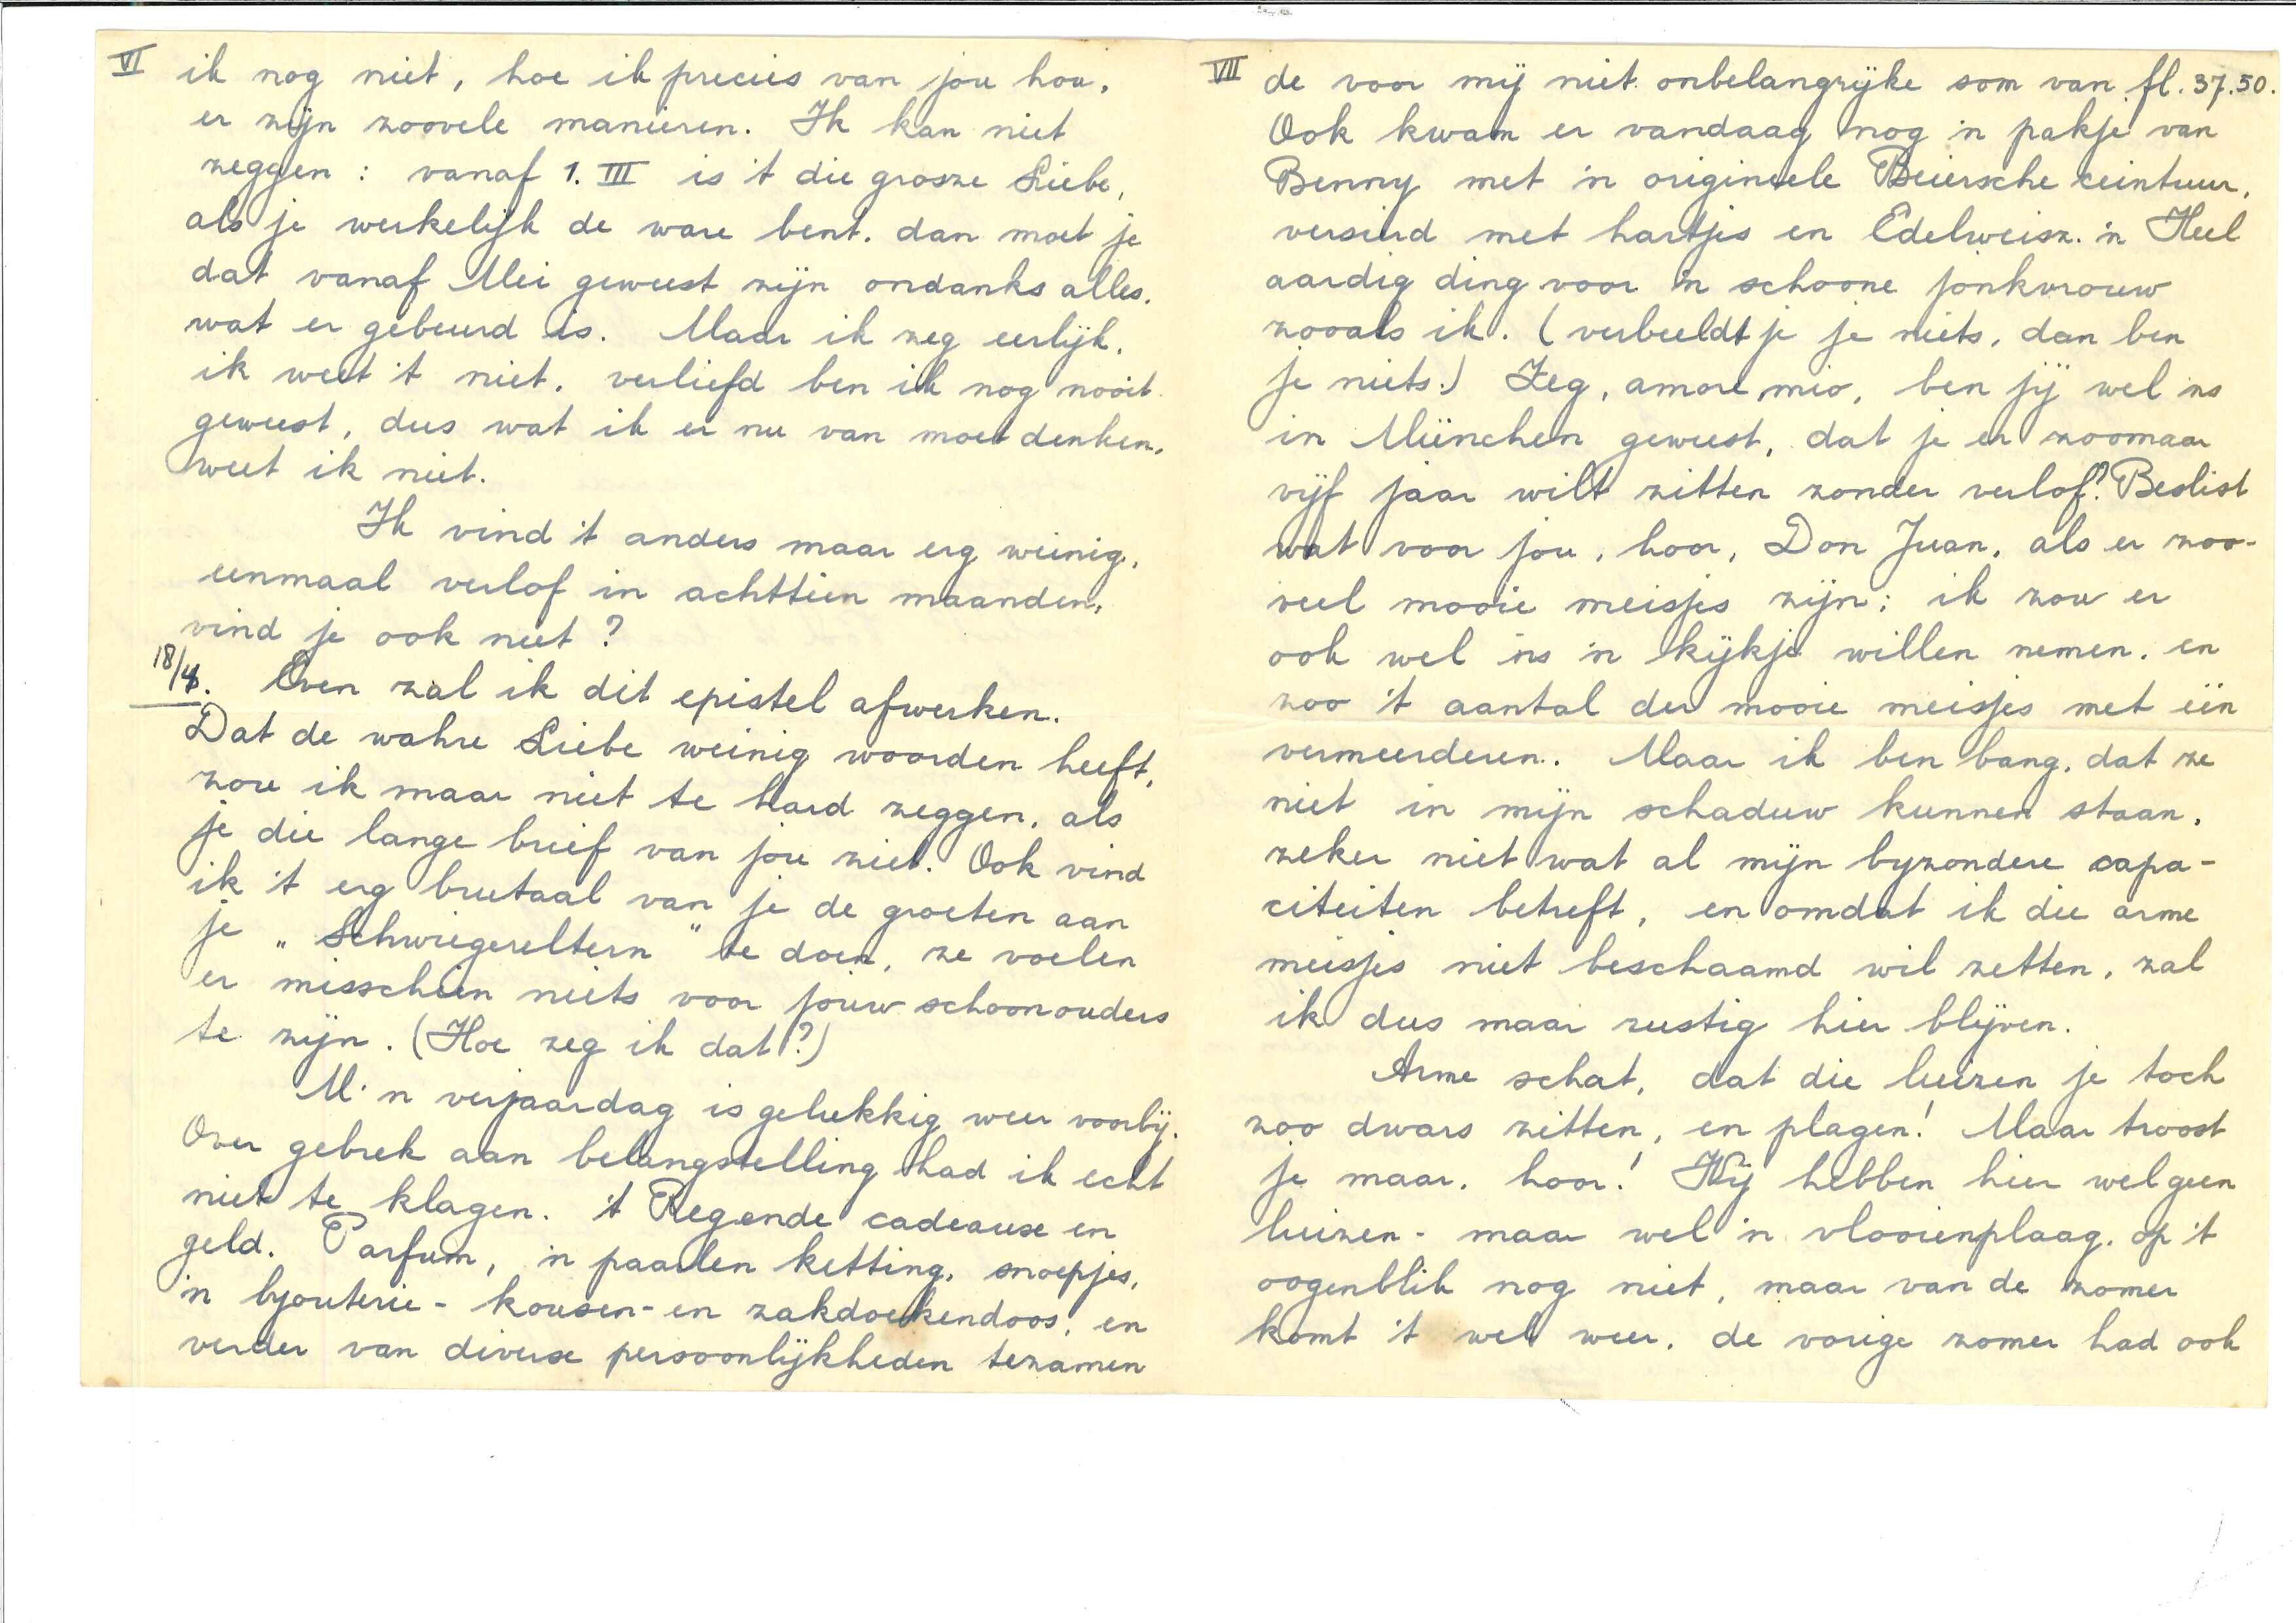 VI ik nog niet, hoe ik precies van jou hou,
er zijn zoovele manieren. Ik kan niet
zeggen: vanaf 1. III is 't die grosze Liebe,
als je werkelijk de ware bent, dan moet je
dat vanaf Mei geweest zijn ondanks alles,
wat er gebeurd is. Maar ik zeg eerlijk,
ik weet 't niet, verliefd ben ik nog nooit
geweest, dus wat ik er nu van moet denken,
weet ik niet.
Ik vind 't anders maar erg weinig,
eenmaal verlof in achttien maanden,
vind je ook niet?
18/4. Even zal ik dit epistel afwerken.
Dat de wahre Liebe weinig woorden heeft,
zou ik maar niet te hard zeggen, als
je die lange brief van jou ziet. Ook vind
ik 't erg brutaal van je de groeten aan
je „Schwiegereltern" te doen, ze voelen
er misschien niets voor jouw schoonouders
te zijn. (Hoe zeg ik dat?)
M'n verjaardag is gelukkig weer voorbij.
Over gebrek aan belangstelling had ik echt
niet te klagen. 't Regende cadeause en
geld. Parfum, 'n paarlen ketting, snoepjes,
'n byouterie- kousen- en zakdoekendoos, en
verder van diverse persoonlijkheden tezamen
VII de voor mij niet onbelangrijke som van fl. 37.50.
Ook kwam er vandaag nog 'n pakje van
Benny met 'n origineele Beiersche ceintuur,
versierd met hartjes en Edelweisz. 'n Heel
aardig ding voor 'n schoone jonkvrouw
zooals ik. (verbeeldt je je niets, dan ben
je niets.) Zeg, amore mio, ben jij wel 'ns
in München geweest, dat je er zoomaar
vijf jaar wilt zitten zonder verlof? Beslist
wat voor jou, hoor, Don Juan, als er zoo-
veel mooie meisjes zijn; ik zou er
ook wel 'ns 'n kijkje willen nemen, en
zoo 't aantal der mooie meisjes met één
vermeerderen. Maar ik ben bang, dat ze
niet in mijn schaduw kunnen staan,
zeker niet wat al mijn byzondere capa-
citeiten betreft, en omdat ik die arme
meisjes niet beschaamd wil zetten, zal
ik dus maar rustig hier blijven.
Arme schat, dat die luizen je toch
zoo dwars zitten, en plagen! Maar troost
je maar, hoor! Wij hebben hier wel geen
luizen - maar wel 'n vlooienplaag, op 't
oogenblik nog niet, maar van de zomer
komt 't wel weer, de vorige zomer had ook